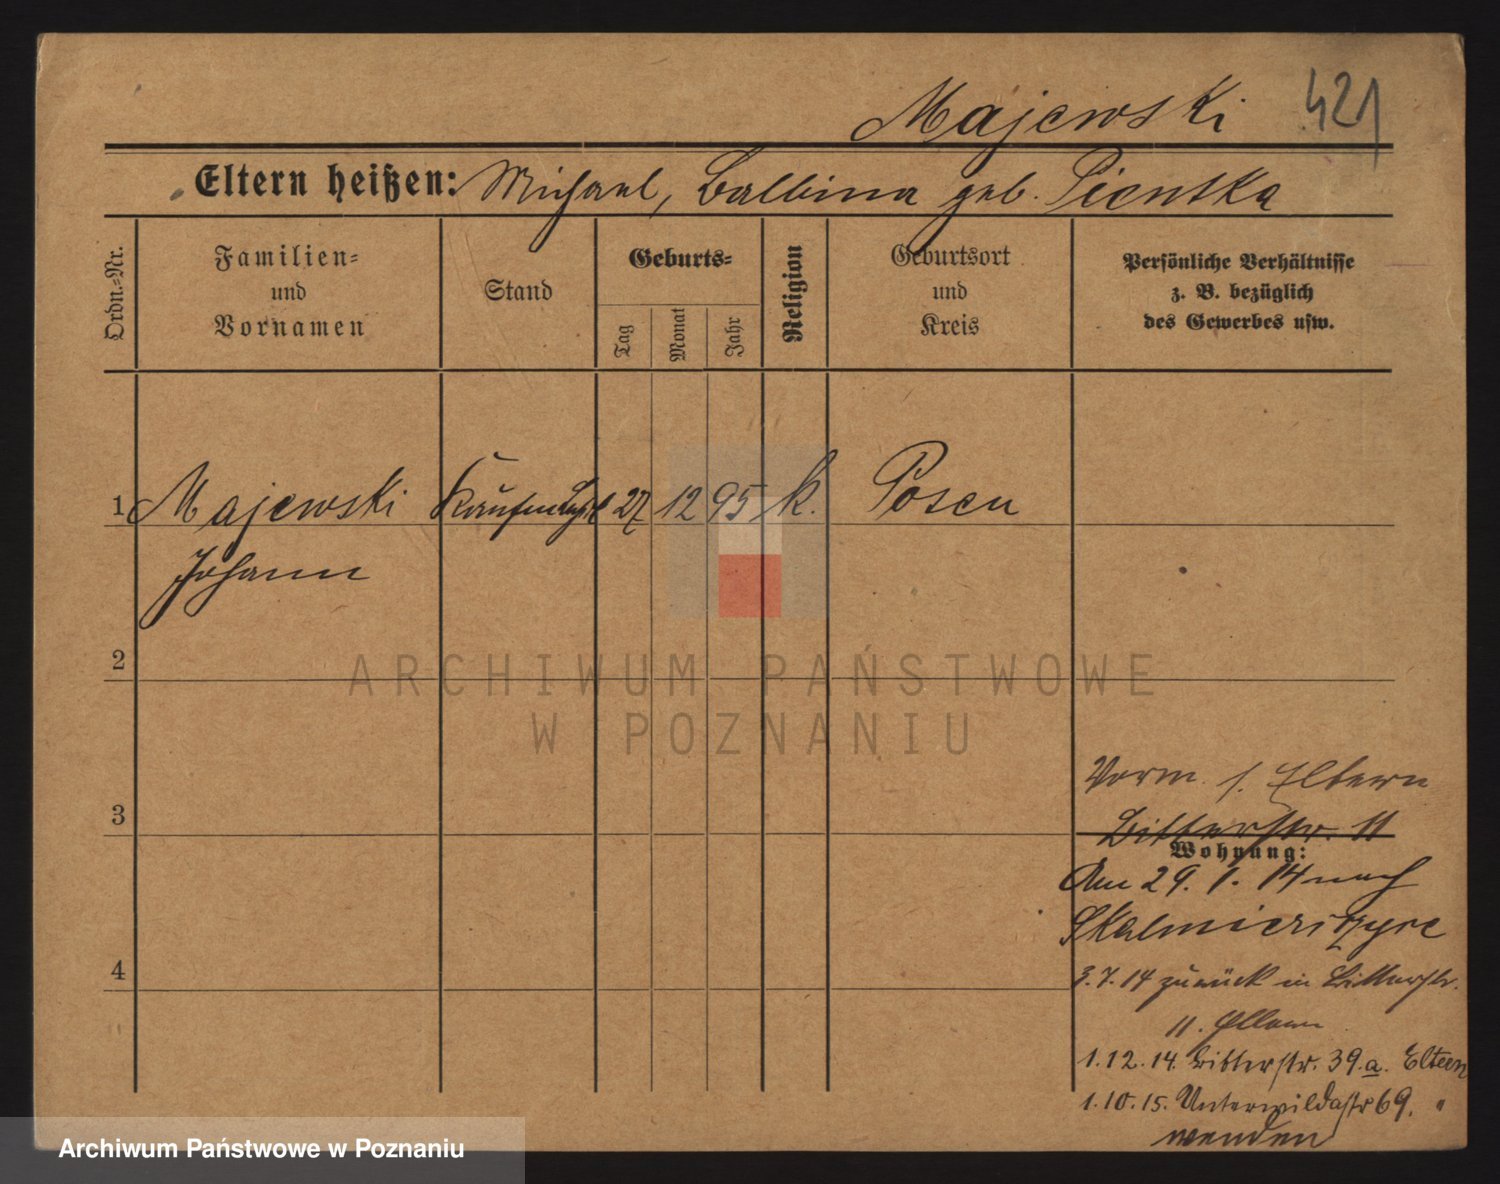 Majewski 421
Eltern heißen: Michael, Balbina geb. Pientka
Ordn.-Nr.
Familien-
und
Vornamen
Stand
Geburts-
Tag
Monat
Jahr
Religion
Geburtsort
und
Kreis
Persönliche Verhältnisse
z. B. bezüglich
des Gewerbes usw.
1 Majewski 27 12 95 k. Posen
Johann
2
3
4
ARCHIWUM PAŃSTWOWE
W POZNANIU
Vorm. s. Eltern
Bitterstr. 11
Wohnung:
Am 29. 1. 14 nach
Skalmierzyce
3.7.14 zurück in Bitterstr.
11. Eltern
1.12.14. Bitterstr. 39.a. Eltern
1.10.15. Unterwildastr 69. "
wenden
Archiwum Państwowe w Poznaniu